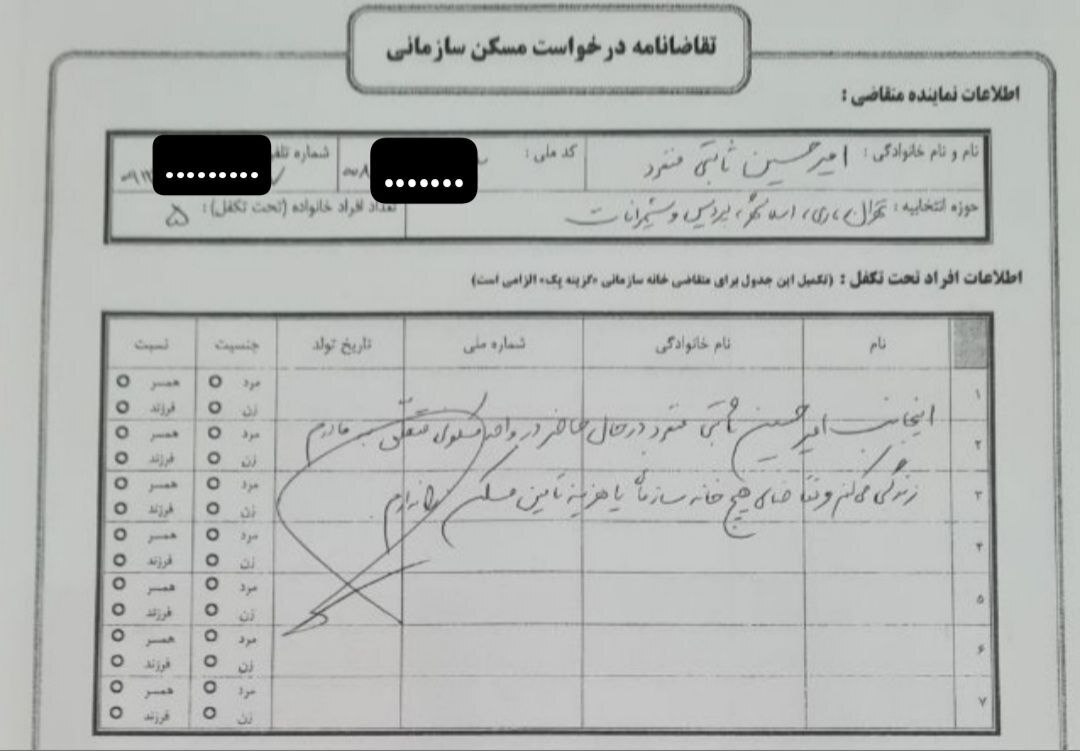 تقاضانامه درخواست مسکن سازمانی
اطلاعات نماینده متقاضی :
نام و نام خانوادگی : امیرحسین ثابتی منفرد کد ملی : ۰۰۸ شماره تلفن ۰۹۱۲
حوزه انتخابیه : تهران، ری، اسلامشهر، پردیس و شمیرانات تعداد افراد خانواده (تحت تکفل) : ۵
اطلاعات افراد تحت تکفل : (تکمیل این جدول برای متقاضی خانه سازمانی «گزینه یک» الزامی است)
نام نام خانوادگی شماره ملی تاریخ تولد جنسیت نسبت
۱ مرد همسر
زن فرزند
اینجانب امیرحسین ثابتی منفرد در حال حاضر در واحد مسکونی متعلق به مادرم
۲ مرد همسر
زن فرزند
زندگی می‌کنم و تقاضای هیچ خانه سازمانی یا هزینه تامین مسکن را ندارم
۳ مرد همسر
زن فرزند
۴ مرد همسر
زن فرزند
۵ مرد همسر
زن فرزند
۶ مرد همسر
زن فرزند
۷ مرد همسر
زن فرزند